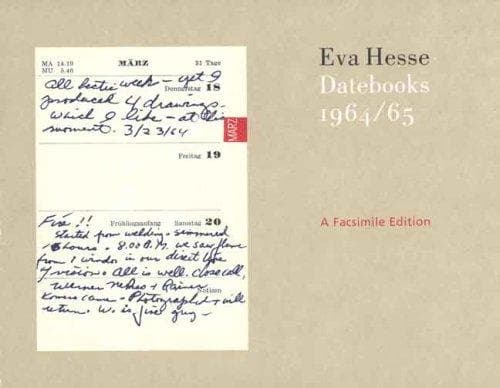 MA 14.19
MU 5.46
MÄRZ
31 Tage
Donnerstag 18
All hectic week – yet I
produced 4 drawings.
which I like – at this
moment. 3/23/64
MÄRZ
Freitag 19
Frühlingsanfang Samstag 20
Fire!!
Started from welding – simmered
hours. 8:00 P.M. we saw flame
from 1 window in our direct line
of vision. All is well. close call,
Notizen
Werner Nekes + Rainer
came – Photographed + will
return. W. is fine guy –
Eva Hesse
Datebooks
1964/65
A Facsimile Edition